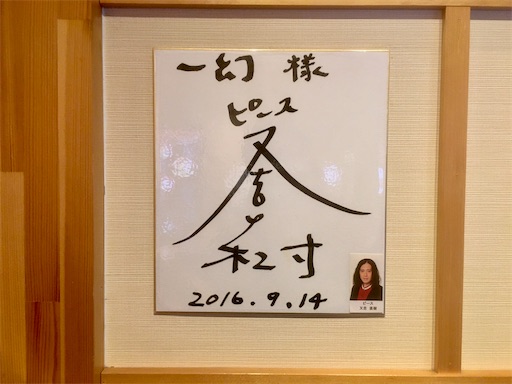 一幻 様
ピース
又吉
直樹
2016.9.14
ピース
又吉 直樹